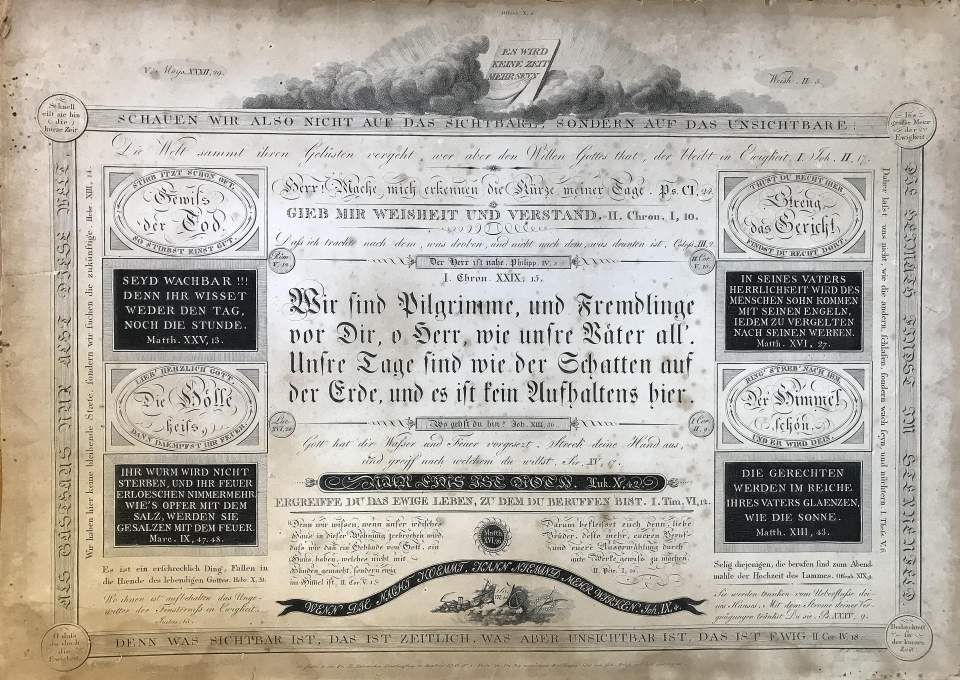 Offenb. X, 6.
ES WIRD
KEINE ZEIT
MEHR SEYN
V. Moys. XXXII, 29.
Weish. II. 5.
Schnell
eilt sie hin
die
kurze Zeit.
SCHAUEN WIR ALSO NICHT AUF DAS SICHTBARE, SONDERN AUF DAS UNSICHTBARE:
Ins
große Meer
der
Ewigkeit.
Die Welt sammt ihren Gelüsten vergeht, wer aber den Willen Gottes thut, der bleibt in Ewigkeit. I. Joh. II. 17.
ALS GASTHAUS NUR ACHT DIESE WELT
Wir haben hier keine bleibende Stätte, sondern wir suchen die zukünftige. Hebr. XIII, 14.
STIRB ITZT SCHON OFT.
Gewiss
der Tod.
SO STIRBST EINST GUT.
SEYD WACHBAR !!!
DENN IHR WISSET
WEDER DEN TAG,
NOCH DIE STUNDE.
Matth. XXV, 13.
LIEB' HERZLICH GOTT.
Die Hölle
heiss,
DANN DAEMPFST IHR FEUER
IHR WURM WIRD NICHT
STERBEN, UND IHR FEUER
ERLOESCHEN NIMMERMEHR.
WIE'S OPFER MIT DEM
SALZ, WERDEN SIE
GESALZEN MIT DEM FEUER.
Marc. IX, 47. 48.
Es ist ein erschrecklich Ding, Fallen in
die Hænde des lebendigen Gottes. Hebr. X, 31.
Herr! Mache mich erkennen die Kürze meiner Tage. Ps. CI, 24.
GIEB MIR WEISHEIT UND VERSTAND. II. Chron. I, 10.
Daß ich trachte nach dem, was droben, und nicht nach dem, was drunten ist. Coloss. III, 2.
Röm.
V. 10.
Der Herr ist nahe. Philipp. IV, 5.
II Cor
V. 10.
I. Chron. XXIX, 15.
Wir sind Pilgrimme, und Fremdlinge
vor Dir, o Herr, wie unsre Väter all'.
Unsre Tage sind wie der Schatten auf
der Erde, und es ist kein Aufhaltens hier.
Luc.
XVI, 24.
Wo gehst du hin? Joh. XIII, 36.
I. Cor.
II. 9.
Gott hat dir Waßer und Feuer vorgesezt. Streck deine Hand aus,
und greiff nach welchem du willst. Sir. IV, 17.
NUR EINS IST NOTH. Luk. X, 42.
ERGREIFFE DU DAS EWIGE LEBEN, ZU DEM DU BERUFFEN BIST. I. Tim. VI, 12.
Denn wir wissen, wenn unser irdisches
Haus in dieser Wohnung zerbrochen wird,
daß wir dan ein Gebäude von Gott, ein
Haus haben, welches nicht mit
Händen gemacht, sondern ewig
im Himmel ist. II. Cor. V. 1.
Matth.
XVI, 26.
Darum befleisset euch denn, liebe
Brüder, desto mehr, euren Beruf
und eure Auserwählung durch
gute Werke gewiß zu machen.
II. Petr. I, 10.
WENN DIE NACHT KOEMMT, KANN NIEMAND MEHR WIRKEN. Joh. IX. 4.
THUST DU RECHT HIER,
Streng
das Gericht
FINDST DU RECHT DORT.
IN SEINES VATERS
HERRLICHKEIT WIRD DES
MENSCHEN SOHN KOMMEN
MIT SEINEN ENGELN,
IEDEM ZU VERGELTEN
NACH SEINEN WERKEN.
Matth. XVI, 27.
RING' STREB' NACH IHM,
Der Himmel
schön.
UND ER WIRD DEIN.
DIE GERECHTEN
WERDEN IM REICHE
IHRES VATERS GLAENZEN,
WIE DIE SONNE.
Matth. XIII, 43.
Selig diejenigen, die berufen sind zum Abend-
mahle der Hochzeit des Lammes. Offenb. XIX, 9.
Sie werden trunken vom Ueberfluße dei-
nes Hauses. Mit dem Strome deiner Ver-
gnügungen tränkst Du sie. Ps. XXXV, 9.
Daher laßet uns nicht, wie die andern, schlafen, sondern wach seyn, und nüchtern. I. Theß. V. 6.
DIE HEIMATH FINDST IM STERNENZELD
O daß
du doch
die
Ewigkeit.
DENN WAS SICHTBAR IST, DAS IST ZEITLICH, WAS ABER UNSICHTBAR IST, DAS IST EWIG. II Cor. IV, 18.
Bedächtest
in
der kurzen
Zeit!